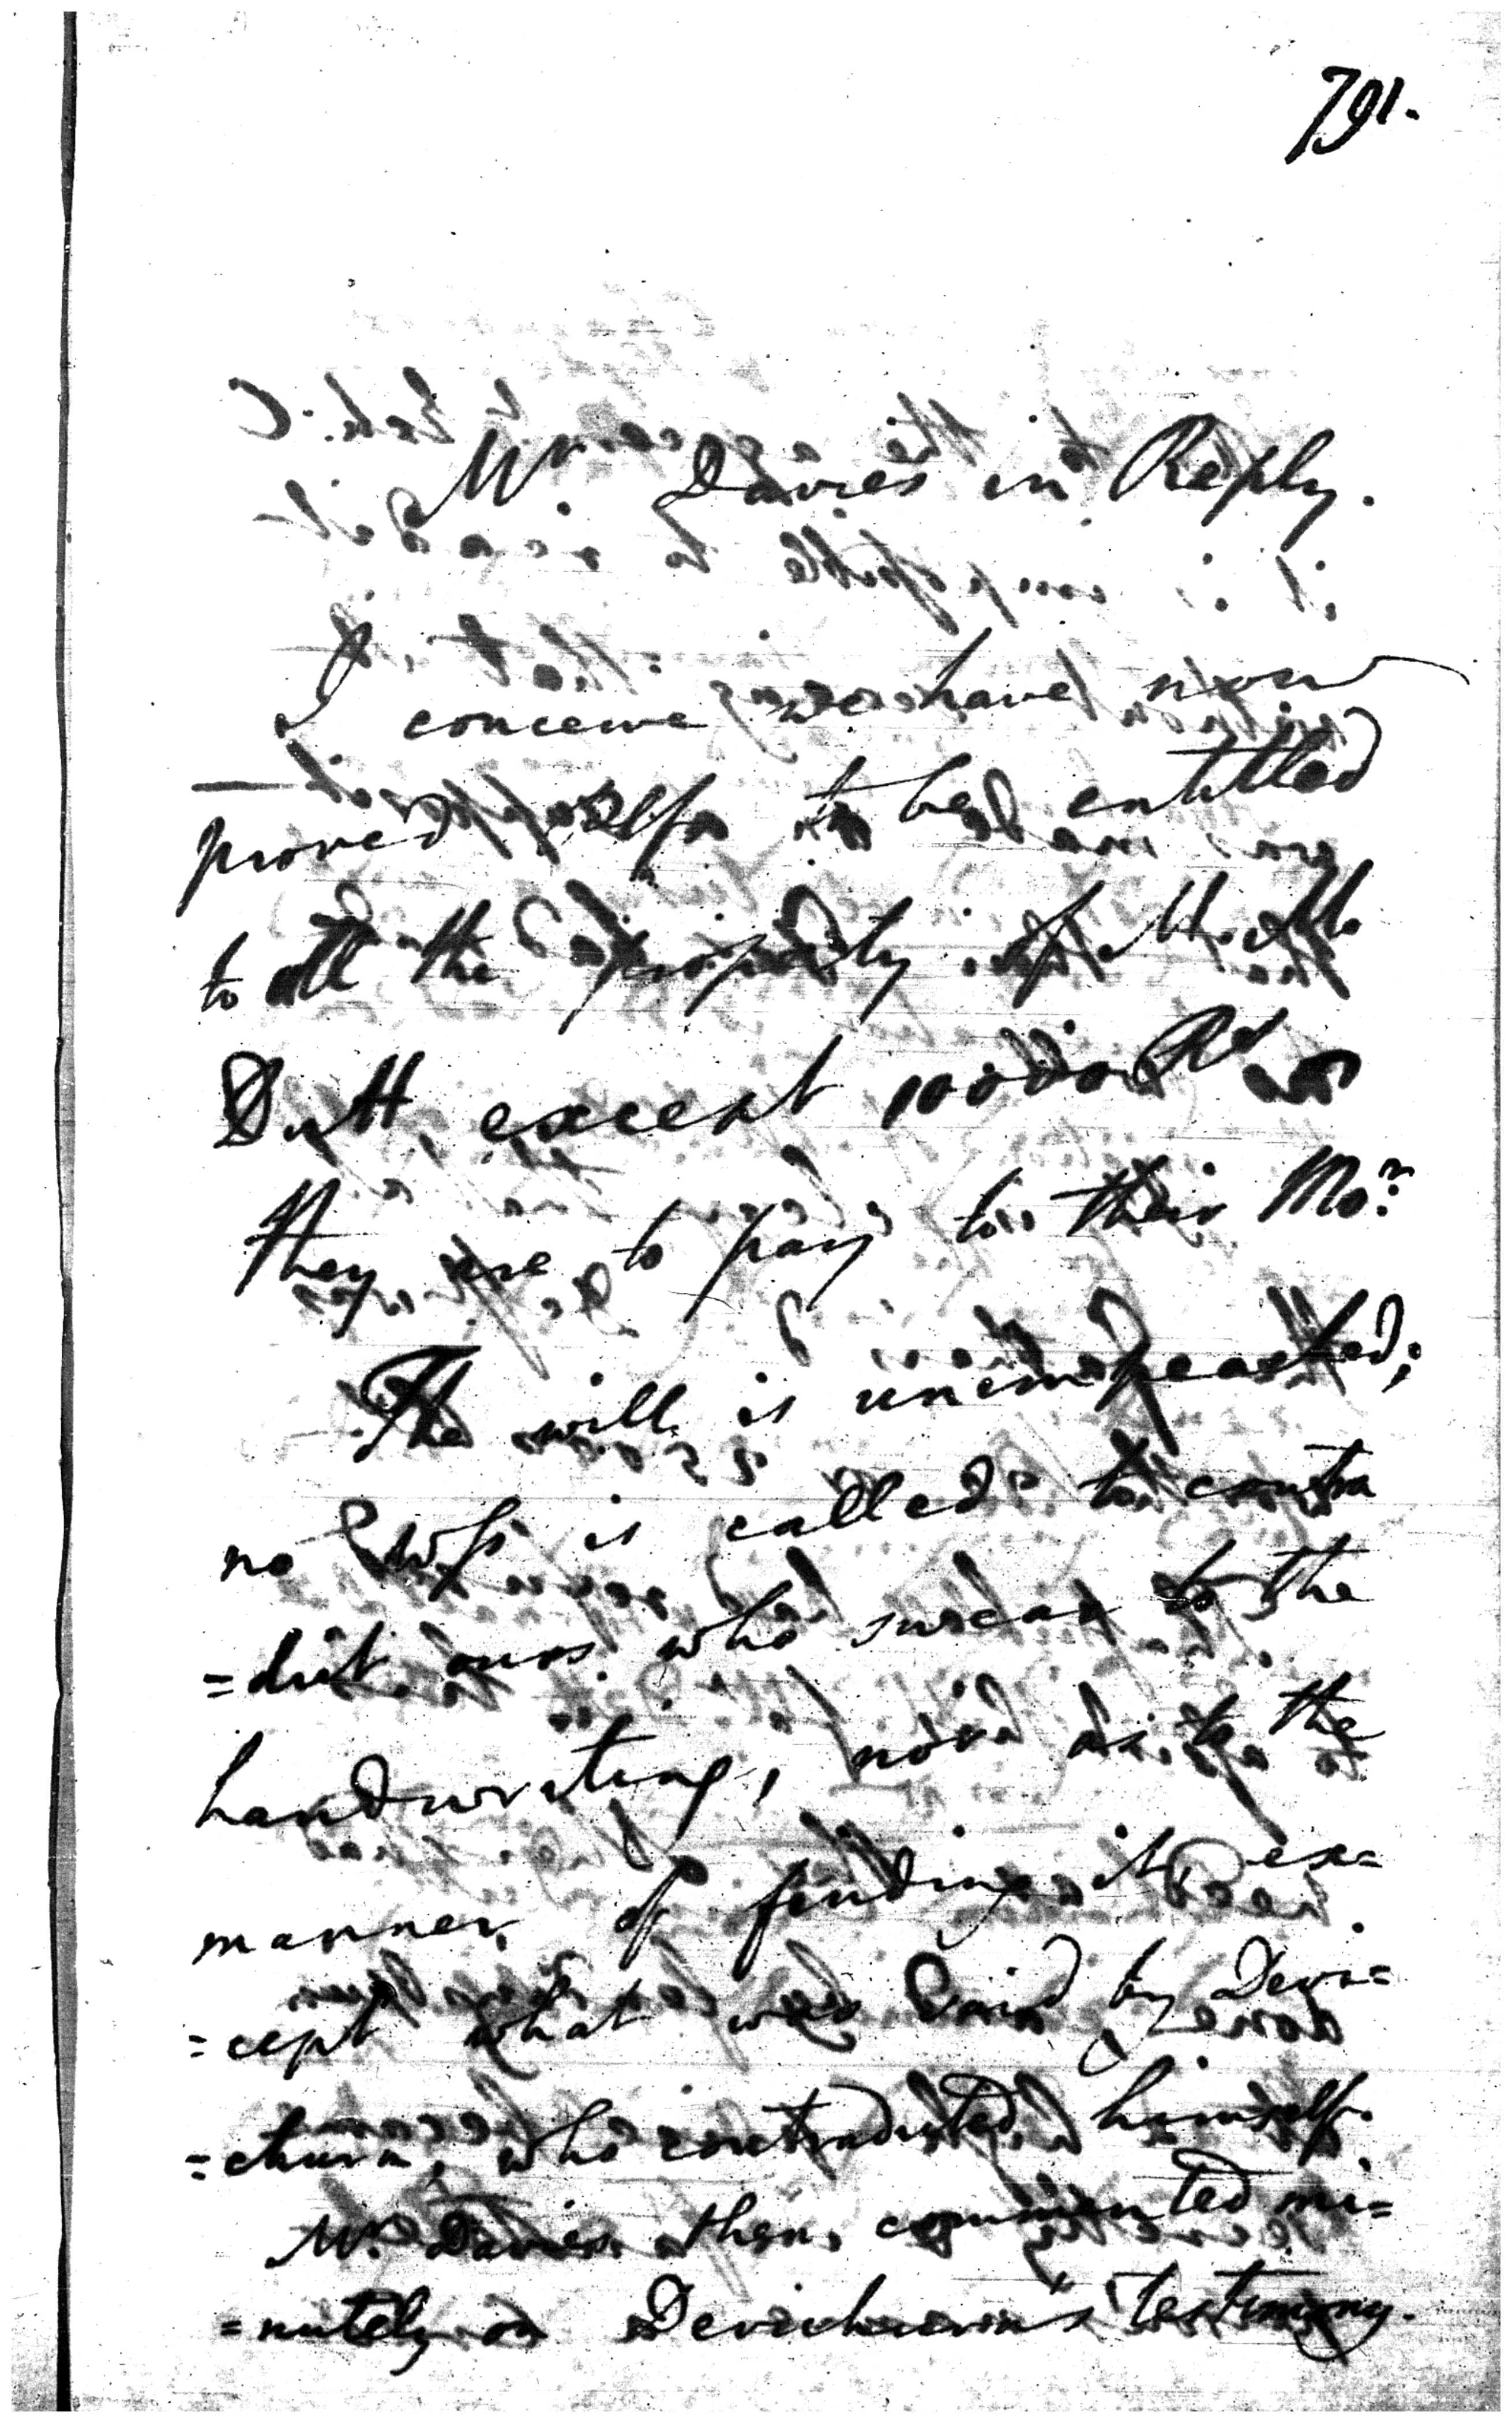 791.
Mr. Davies in Reply.
I conceive we have now
proved to be entitled
to all the property of M. M.
Dutt, except 10000 Rs
they are to pay to their Mor.
The will is unimpeached;
no Wss is called to contra
=dict ours who swear to the
handwriting, nor as to the
manner of finding it, ex=
=cept what was said by Devi=
=churn, who contradicted himself.
Mr. Davies then commented mi=
=nutely on Devichurn's testimony.